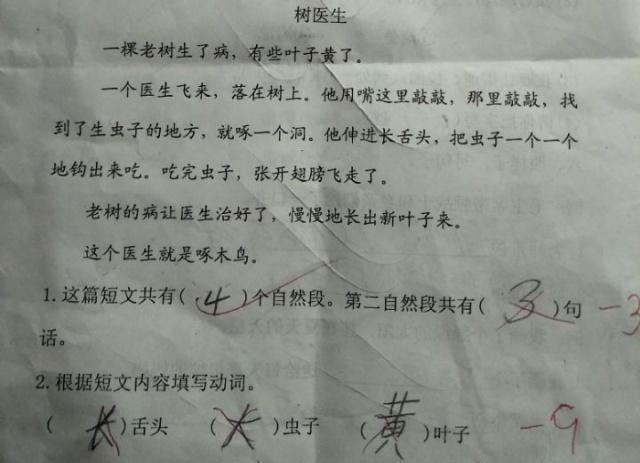 树医生
一棵老树生了病，有些叶子黄了。
一个医生飞来，落在树上。他用嘴这里敲敲，那里敲敲，找
到了生虫子的地方，就啄一个洞。他伸进长舌头，把虫子一个一个
地钩出来吃。吃完虫子，张开翅膀飞走了。
老树的病让医生治好了，慢慢地长出新叶子来。
这个医生就是啄木鸟。
1.这篇短文共有( 4 )个自然段。第二自然段共有( 3 )句 -3
话。
2.根据短文内容填写动词。
( 长 )舌头 ( 大 )虫子 ( 黄 )叶子 -9